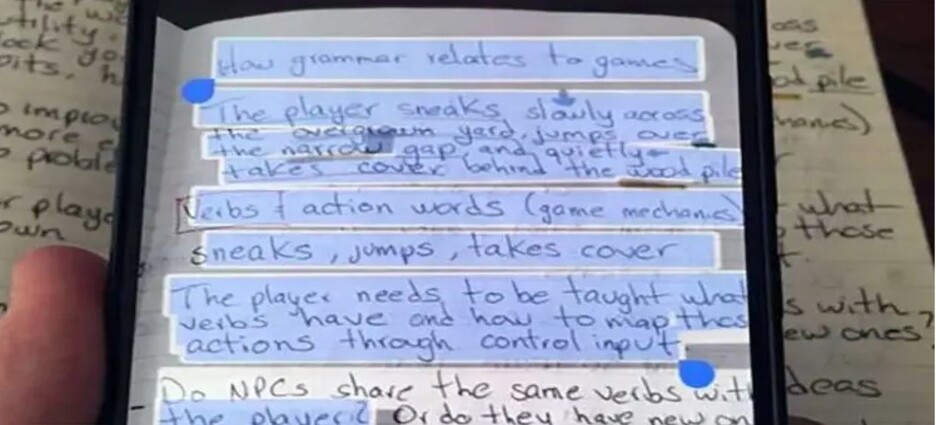 How grammar relates to games
The player sneaks slowly across
the overgrown yard, jumps over
the narrow gap and quietly
takes cover behind the wood pile
Verbs & action words (game mechanics)
sneaks, jumps, takes cover
The player needs to be taught what
verbs have and how to map thos
actions through control input.
Do NPCs share the same verbs with
the player? Or do they have new on
tility.
lock yo
bits, h
more e
proble
playe
own
oss
pile
hanics)
what
those
s with
ew ones?
deas